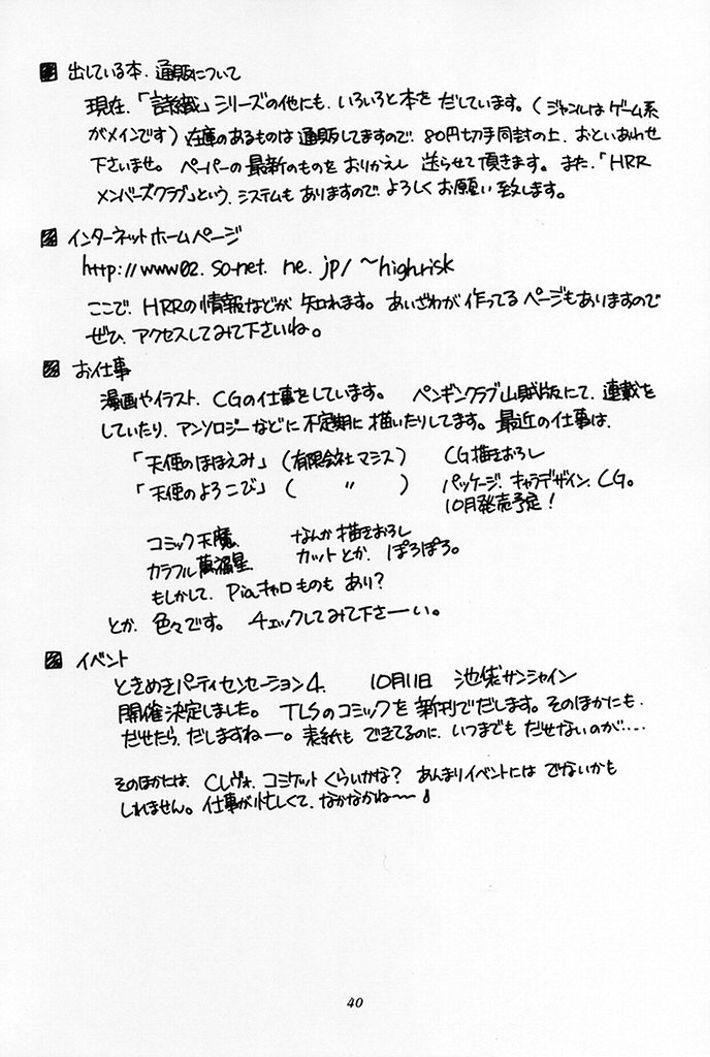 出している本、通販について
現在、「詩織」シリーズの他にも、いろいろと本を だしています。(ジャンルは ゲーム系
がメインです)在庫のあるものは 通販してますので、80円切手同封の上、おといあわせ
下さいませ。 ペーパーの 最新のものを おりかえし 送らせて頂きます。 また、「HRR
メンバーズクラブ」という、システムも ありますので、よろしく お願い 致します。
インターネットホームページ
http://www02.so-net.ne.jp/~highrisk
ここで、HRRの情報などが 知れます。 あいざわが 作ってる ページもありますので
ぜひ、アクセスしてみて下さいね。
お仕事
漫画やイラスト、CGの仕事をしています。 ペンギンクラブ山賊版にて、連載を
していたり、アンソロジーなどに 不定期に 描いたりしてます。最近の仕事は、
「天使のほほえみ」(有限会社マシス) CG描きおろし
「天使のよろこび」( 〃 ) パッケージ、キャラデザイン、CG。
10月発売予定!
コミック天魔、 なんか描きおろし
カラフル萬福星、 カットとか、ぽろぽろ。
もしかして、Piaキャロものも あり?
とか、色々です。 チェックしてみて下さーい。
イベント
ときめきパーティセンセーション4、 10月11日 池袋サンシャイン
開催決定しました。 TLSのコミックを 新刊でだします。そのほかにも、
だせたら、だしますねー。表紙も できてるのに、いつまでも だせないのが‥‥
そのほかには、Cレヴォ、コミケット くらいかな? あんまりイベントには でないかも
しれません。仕事が忙しくて、なかなかね〜〜♪
40